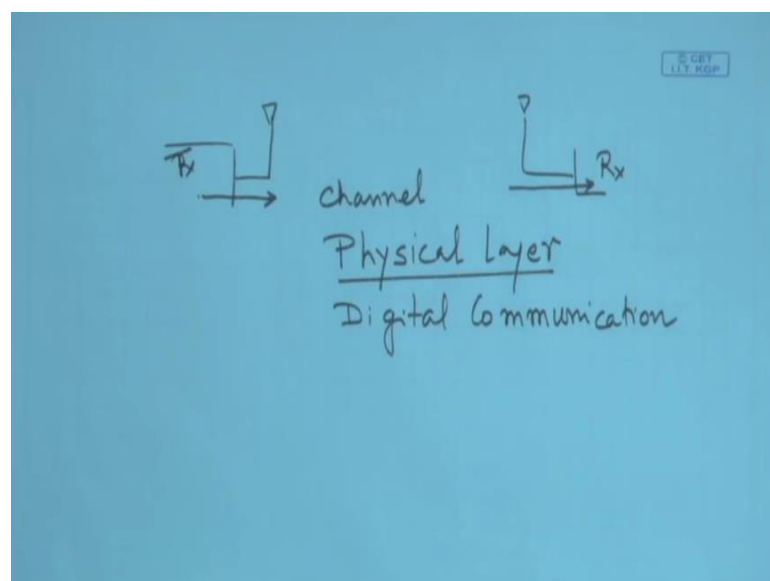 © CET
I.I.T. KGP
Tx
Rx
Channel
Physical Layer
Digital Communication